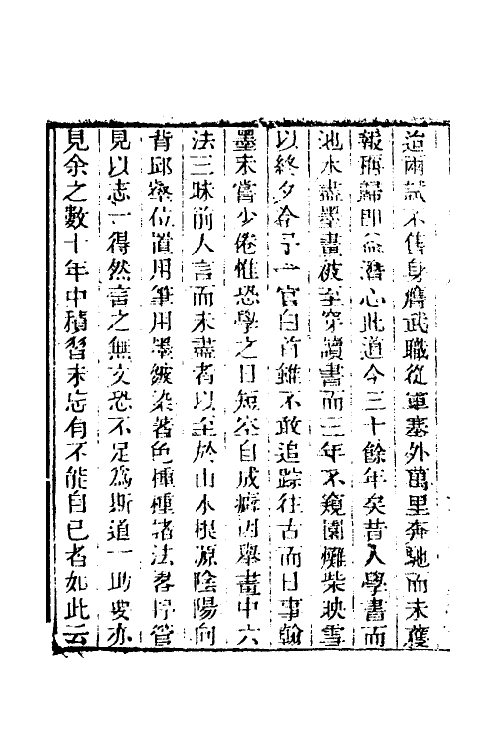 道兩試不售身膺武職從軍塞外萬里奔馳而未獲
報稱歸即益潛心此道今三十餘年矣昔人學書而
池水盡墨畫被至穿讀書而三年不窺園爇柴映雪
以終夕今予一官白首雖不敢追踪往古而日事翰
墨未嘗少倦惟恐學之日短年自成癖因舉畫中六
法三昧前人言而未盡者以至於山水根源陰陽向
背邱壑位置用筆用墨皴染著色種種諸法畧抒管
見以志一得然言之無文恐不足為斯道一助要亦
見余之數十年中積習未忘有不能自已者如此云